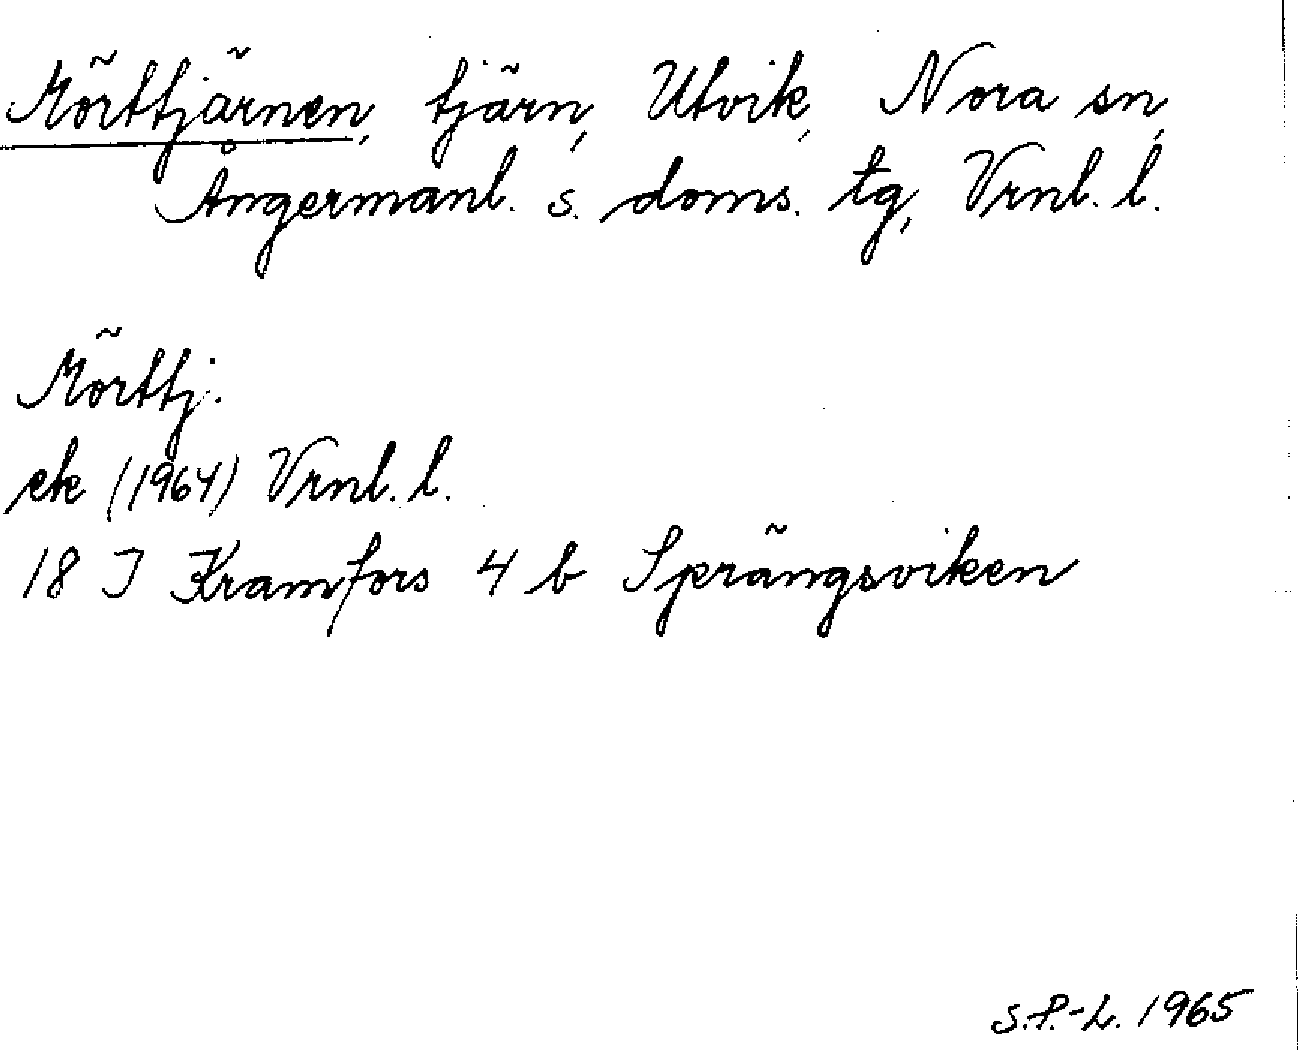 Mörttjärnen, tjärn, Utvik, Nora sn,
Ångermanl. s. doms. tg, Vrnl. l.
Mörttj.
ek (1964) Vrnl. l.
18 J Kramfors 4 b Sprängsviken
S.P.-L. 1965